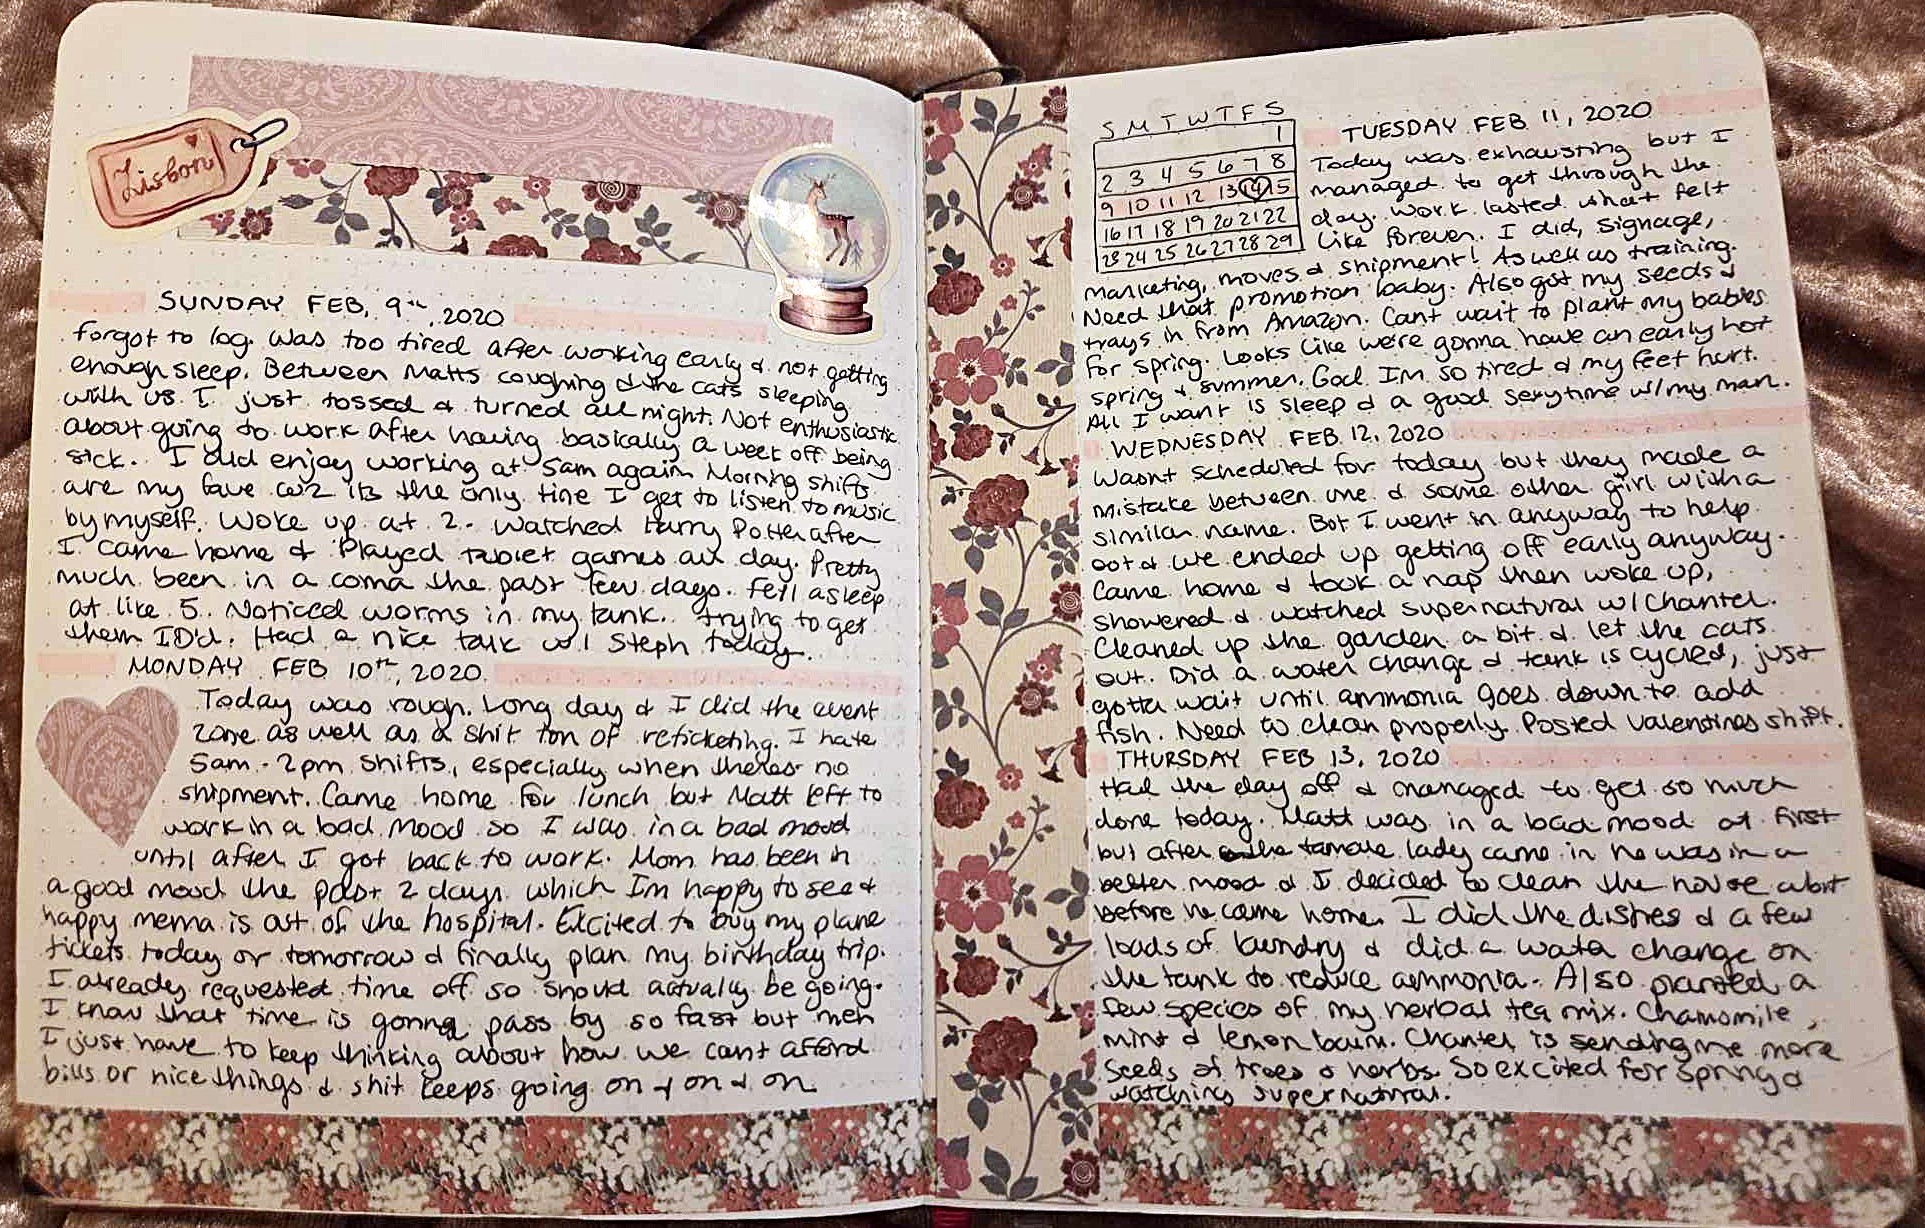 Lisbon
SUNDAY FEB, 9th, 2020
forgot to log. Was too tired after working early & not getting
enough sleep. Between Matts coughing & the cats sleeping
with us I just tossed & turned all night. Not enthusiastic
about going to work after having basically a week off being
sick.. I did enjoy working at 5am again. Morning shifts
are my fave cuz its the only time I get to listen to music
by myself. Woke up at 2. Watched Harry Potter after
I came home & Played tablet games all day. Pretty
much been in a coma the past few days. Fell asleep
at like 5. Noticed worms in my tank.. trying to get
them ID'd. Had a nice talk w/ Steph today..
MONDAY FEB 10th, 2020
Today was rough. Long day & I did the event
zone as well as a shit ton of reticketing. I hate
5am-2pm shifts, especially when theres no
shipment. Came home for lunch but Matt left to
work in a bad mood so I was in a bad mood
until after I got back to work. Mom has been in
a good mood the past 2 days which Im happy to see &
happy mema is out of the hospital. Excited to buy my plane
tickets today or tomorrow & finally plan my birthday trip.
I already requested time off so should actually be going.
I know that time is gonna pass by so fast but meh
I just have to keep thinking about how we cant afford
bills or nice things & shit keeps going on & on & on
S M T W T F S
1
2 3 4 5 6 7 8
9 10 11 12 13 14 15
16 17 18 19 20 21 22
23 24 25 26 27 28 29
TUESDAY FEB 11, 2020
Today was exhausting but I
managed to get through the
day. Work lasted what felt
like forever. I did, signage,
marketing, moves & shipment! As well as training.
Need that promotion baby. Also got my seeds &
trays in from Amazon. Cant wait to plant my babies
for spring. Looks like we're gonna have an early hot
spring & summer. God Im so tired & my feet hurt.
All I want is sleep & a good sexytime w/ my man.
WEDNESDAY FEB 12, 2020
Wasnt scheduled for today but they made a
mistake between me & some other girl with a
similar name. But I went in anyway to help
out & we ended up getting off early anyway.
Came home & took a nap then woke up,
showered & watched supernatural w/ Chantel.
Cleaned up the garden a bit & let the cats
out. Did a water change & tank is cycled, just
gotta wait until ammonia goes down to add
fish. Need to clean properly. Posted valentines shirt.
THURSDAY FEB 13, 2020
Had the day off & managed to get so much
done today. Matt was in a bad mood at first
but after the tamale lady came in he was in a
better mood & I decided to clean the house abit
before he came home. I did the dishes & a few
loads of laundry & did a water change on
the tank to reduce ammonia. Also planted a
few species of my herbal tea mix. Chamomile,
mint & lemon balm. Chantel is sending me more
seeds of trees & herbs. So excited for spring &
watching supernatural.